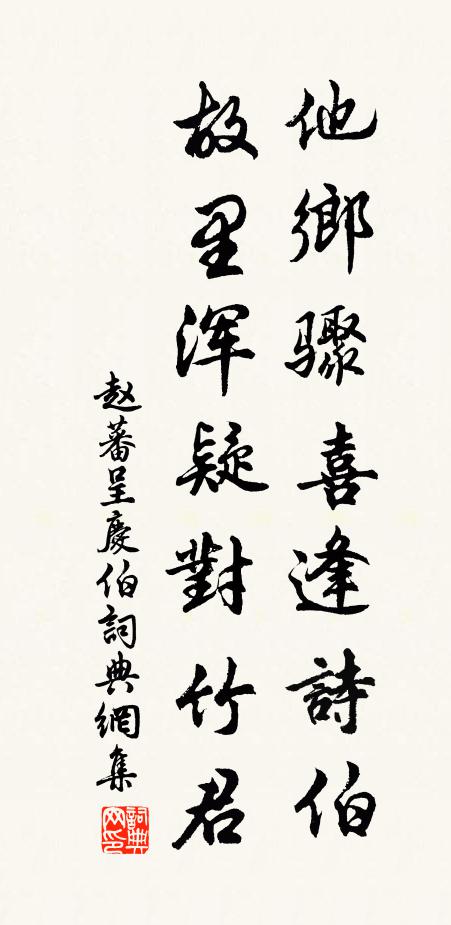 他鄉骤喜逢詩伯
故里浑疑對竹君
赵蕃呈慶伯詞典網集
詞典網印